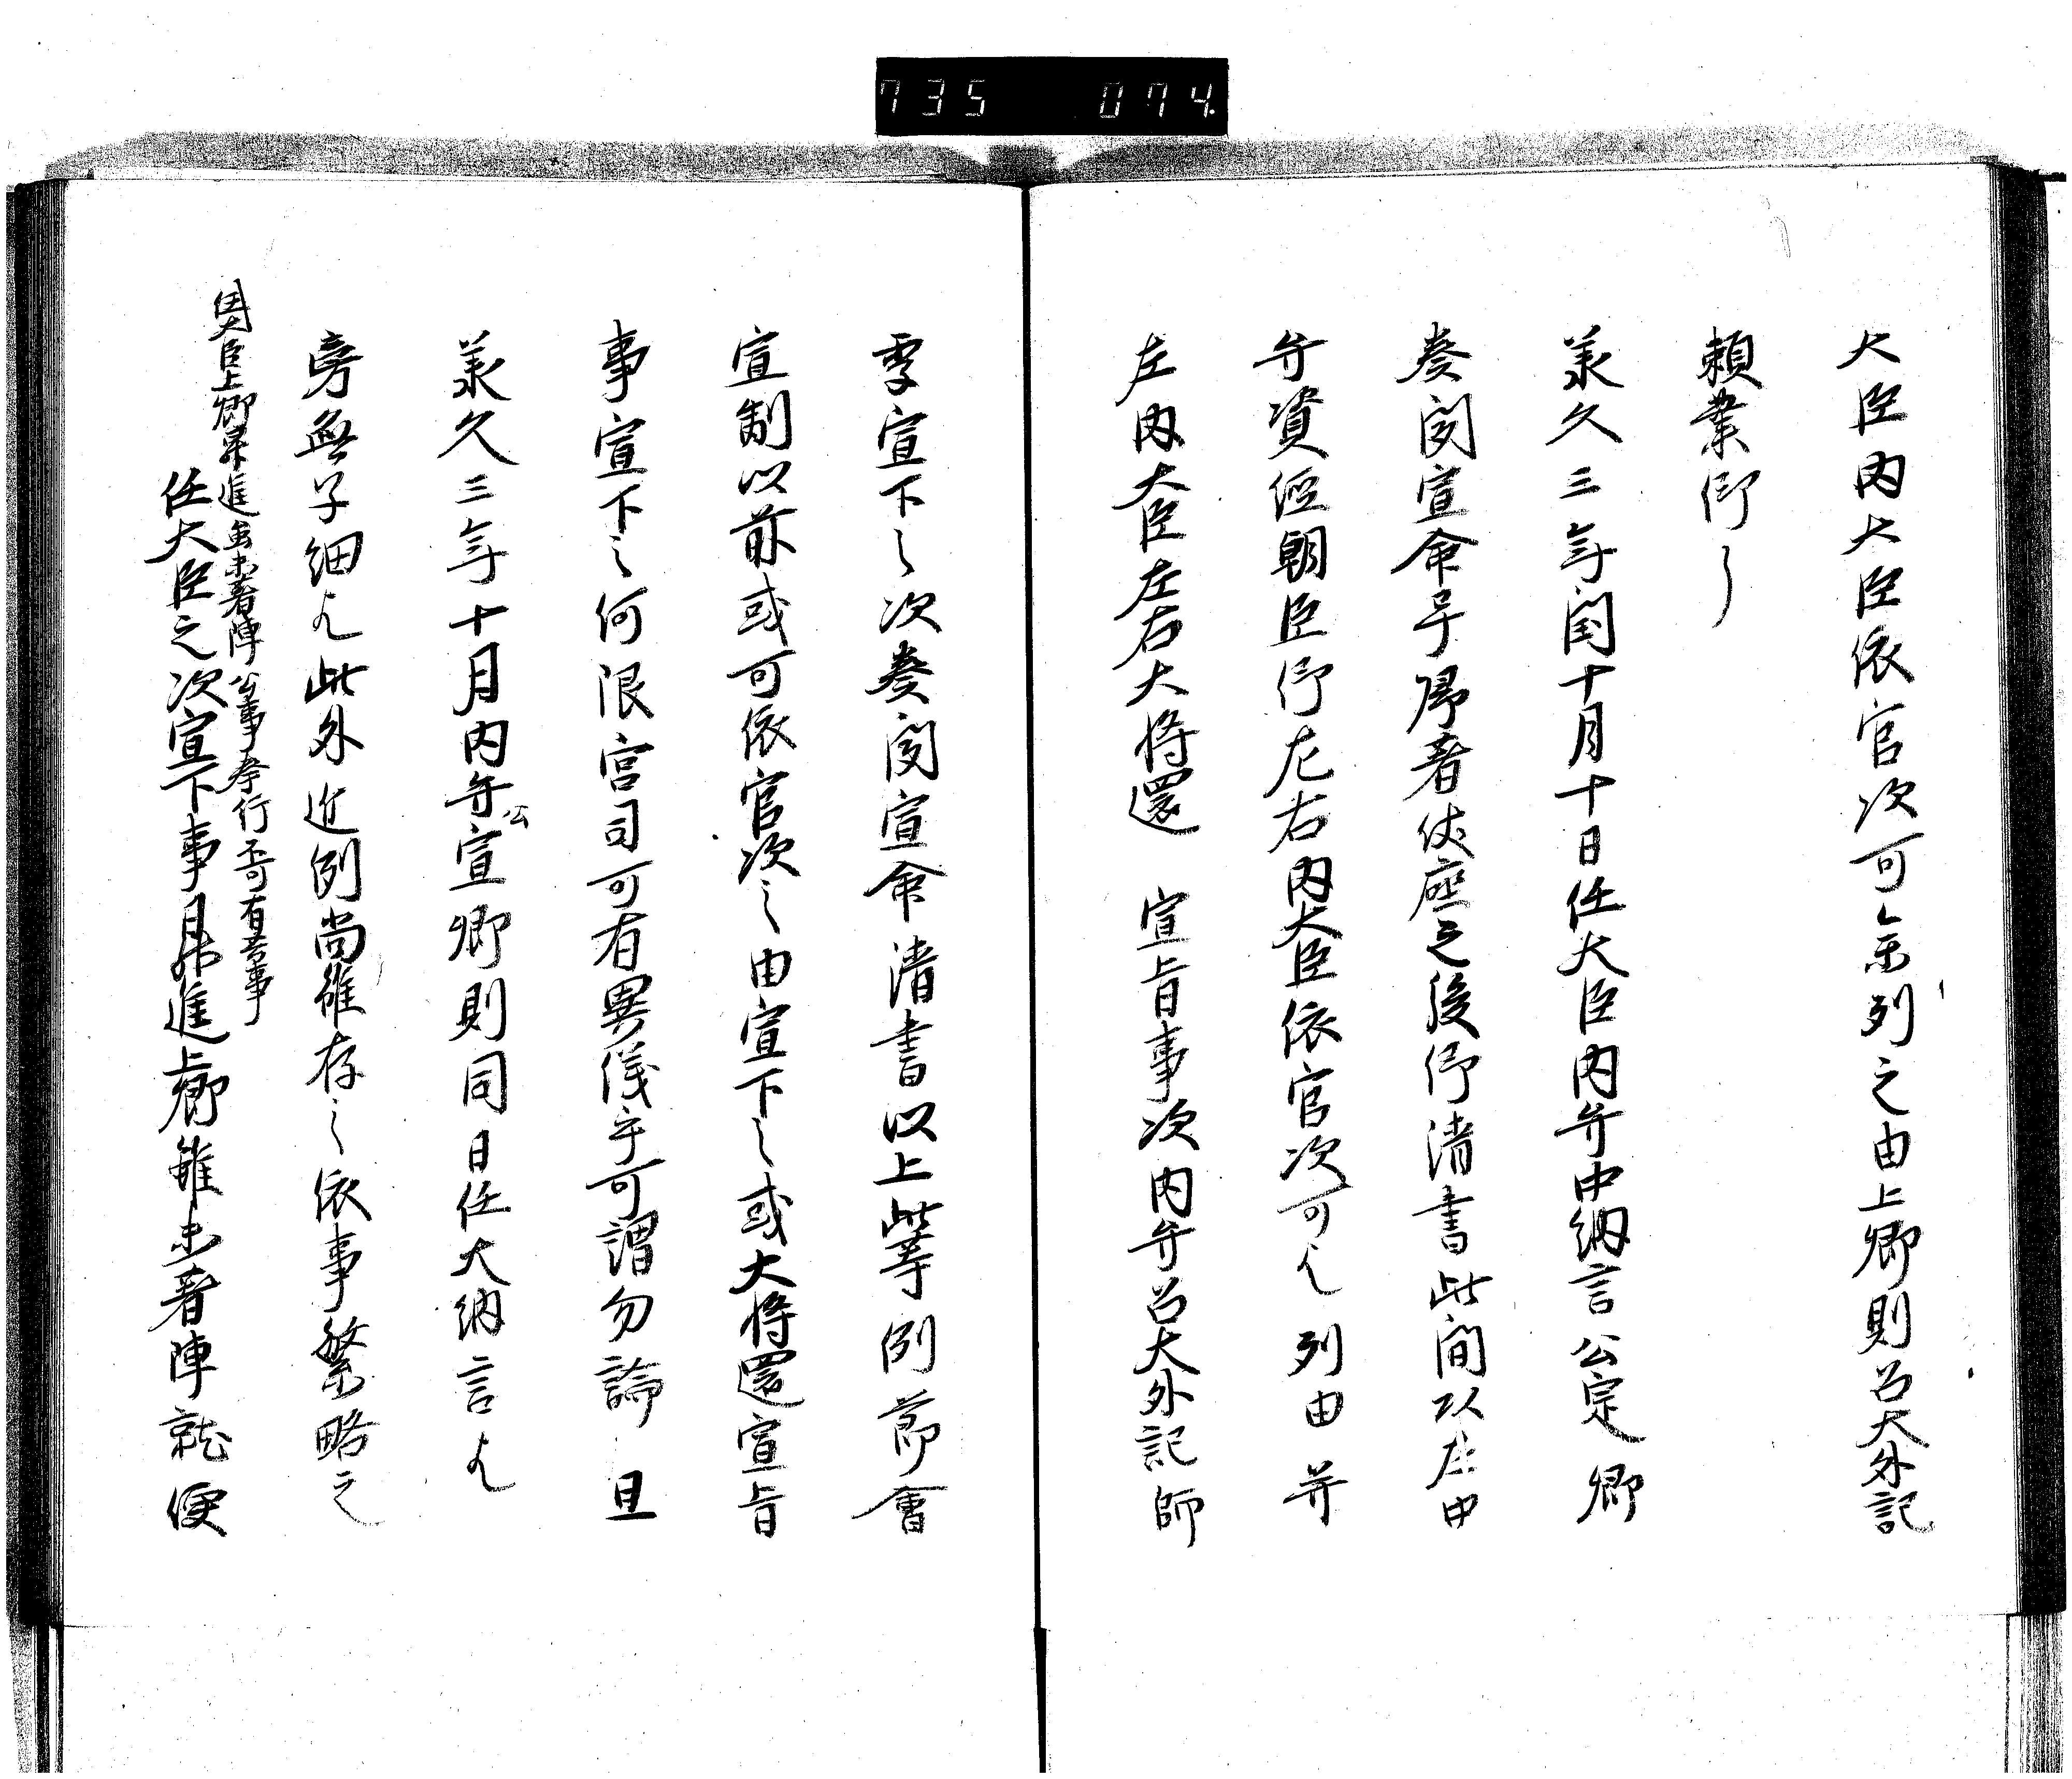 735 074
大臣内大臣依官次可参列之由上卿則召大外記
頼業仰々
承久三年閏十月十日任大臣内弁中納言公定卿
奏聞宣命号帰着仗座之後仰清書此間以左中
弁資経朝臣仰左右内大臣依官次可列由并
左内大臣左右大将還宣旨事次内弁召大外記師
季宣下之次奏聞宣命清書以上此等例節会
宣制以前或可依官次之由宣下之或大将還宣旨
事宣下之何限宮司可有異儀乎可謂勿論且
承久三年十月内弁公宣卿則同日任大納言
旁無子細此外近例尚雖存之依事繁略之
臣上卿昇進未着陣公事奉行可有事
任大臣之次宣下事昇進上卿雖未着陣就便